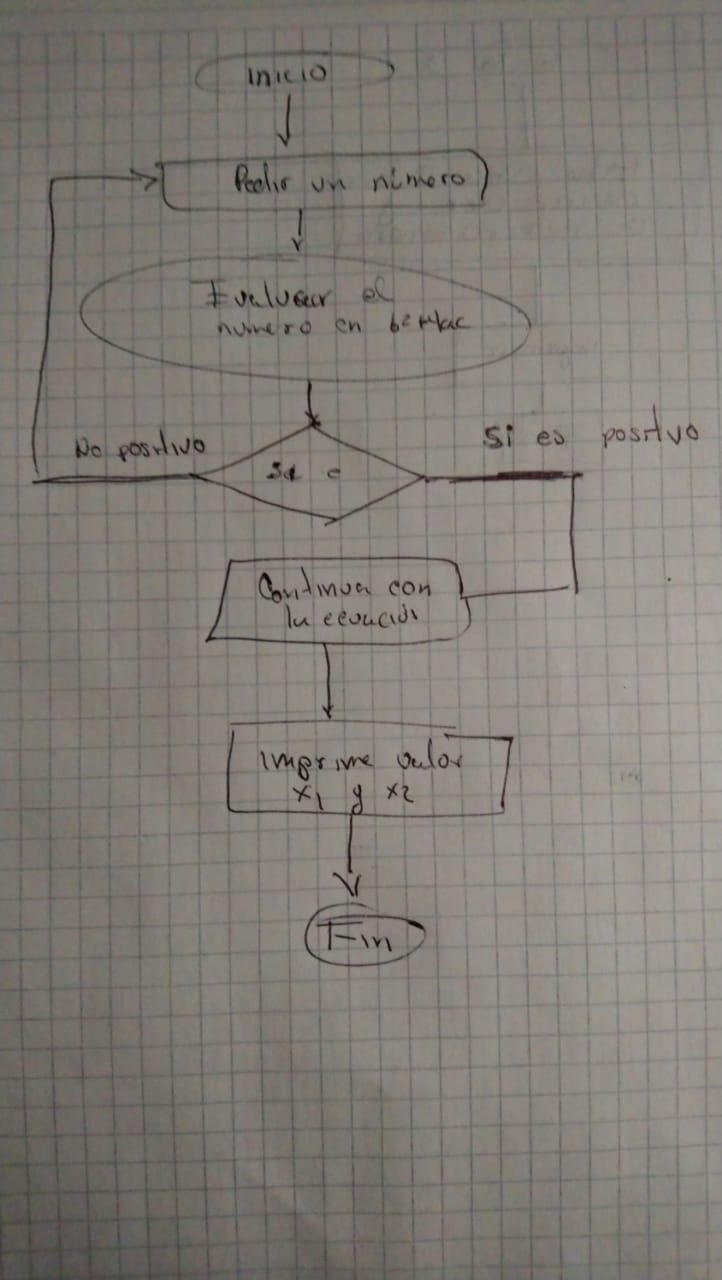 Inicio
Pedir un número
Evaluar el
numero en b²-4ac
No positivo
Si es positivo
Continua con
la ecuación
imprime valor
x1 y x2
Fin